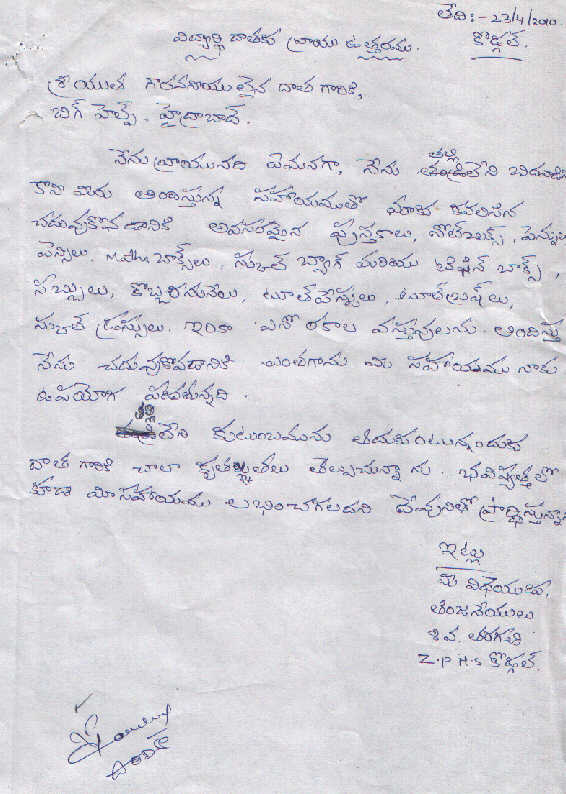 తేది:- 22/4/2010.
విద్యార్థి దాతకు వ్రాయు ఉత్తరము. కొడ్గల్.
శ్రీయుత గౌరవనీయులైన దాత గారికి,
బిగ్ హెల్ప్, హైద్రాబాద్.
నేను వ్రాయునది ఏమనగా, నేను తల్లి లేని
కాని మీరు అందిస్తున్న సహాయముతో మాకు కావలసిన
చదువుకొనడానికి అవసరమైన పుస్తకాలు, నోట్‌బుక్స్, పెన్నులు
పెన్సిలు, Maths బాక్స్‌లు, స్కూల్ బ్యాగ్ మరియు టిఫిన్ బాక్స్,
సబ్బులు, కొబ్బరినూనెలు, టూత్‌పేస్టులు, టూత్‌బ్రష్‌లు,
స్కూల్ డ్రస్సులు, ఇంకా ఎన్నో రకాల వస్తువులను అందిస్తు
నేను చదువుకొవడానికి ఎంతగాను మీ సహాయము నాకు
ఉపయోగ పడుతున్నది.
తల్లిలేని కుటుంబమును ఆదుకుంటున్నందుకు
దాత గారికి చాలా కృతజ్ఞతలు తెలుపుచున్నాను. భవిష్యత్తులో
కూడా మీ సహాయము లభించగలదని దేవునితో ప్రార్థిస్తున్నాను
ఇట్లు
మీ విధేయుడు,
ఆంజనేయులు
6వ. తరగతి
Z.P.H.S కొడ్గల్.